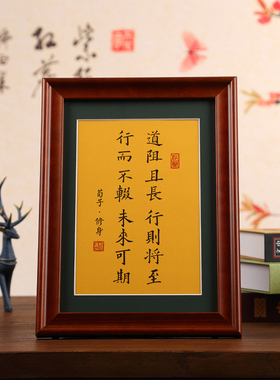 道阻且長 行則将至
行而不輟 未來可期
荀子·修身